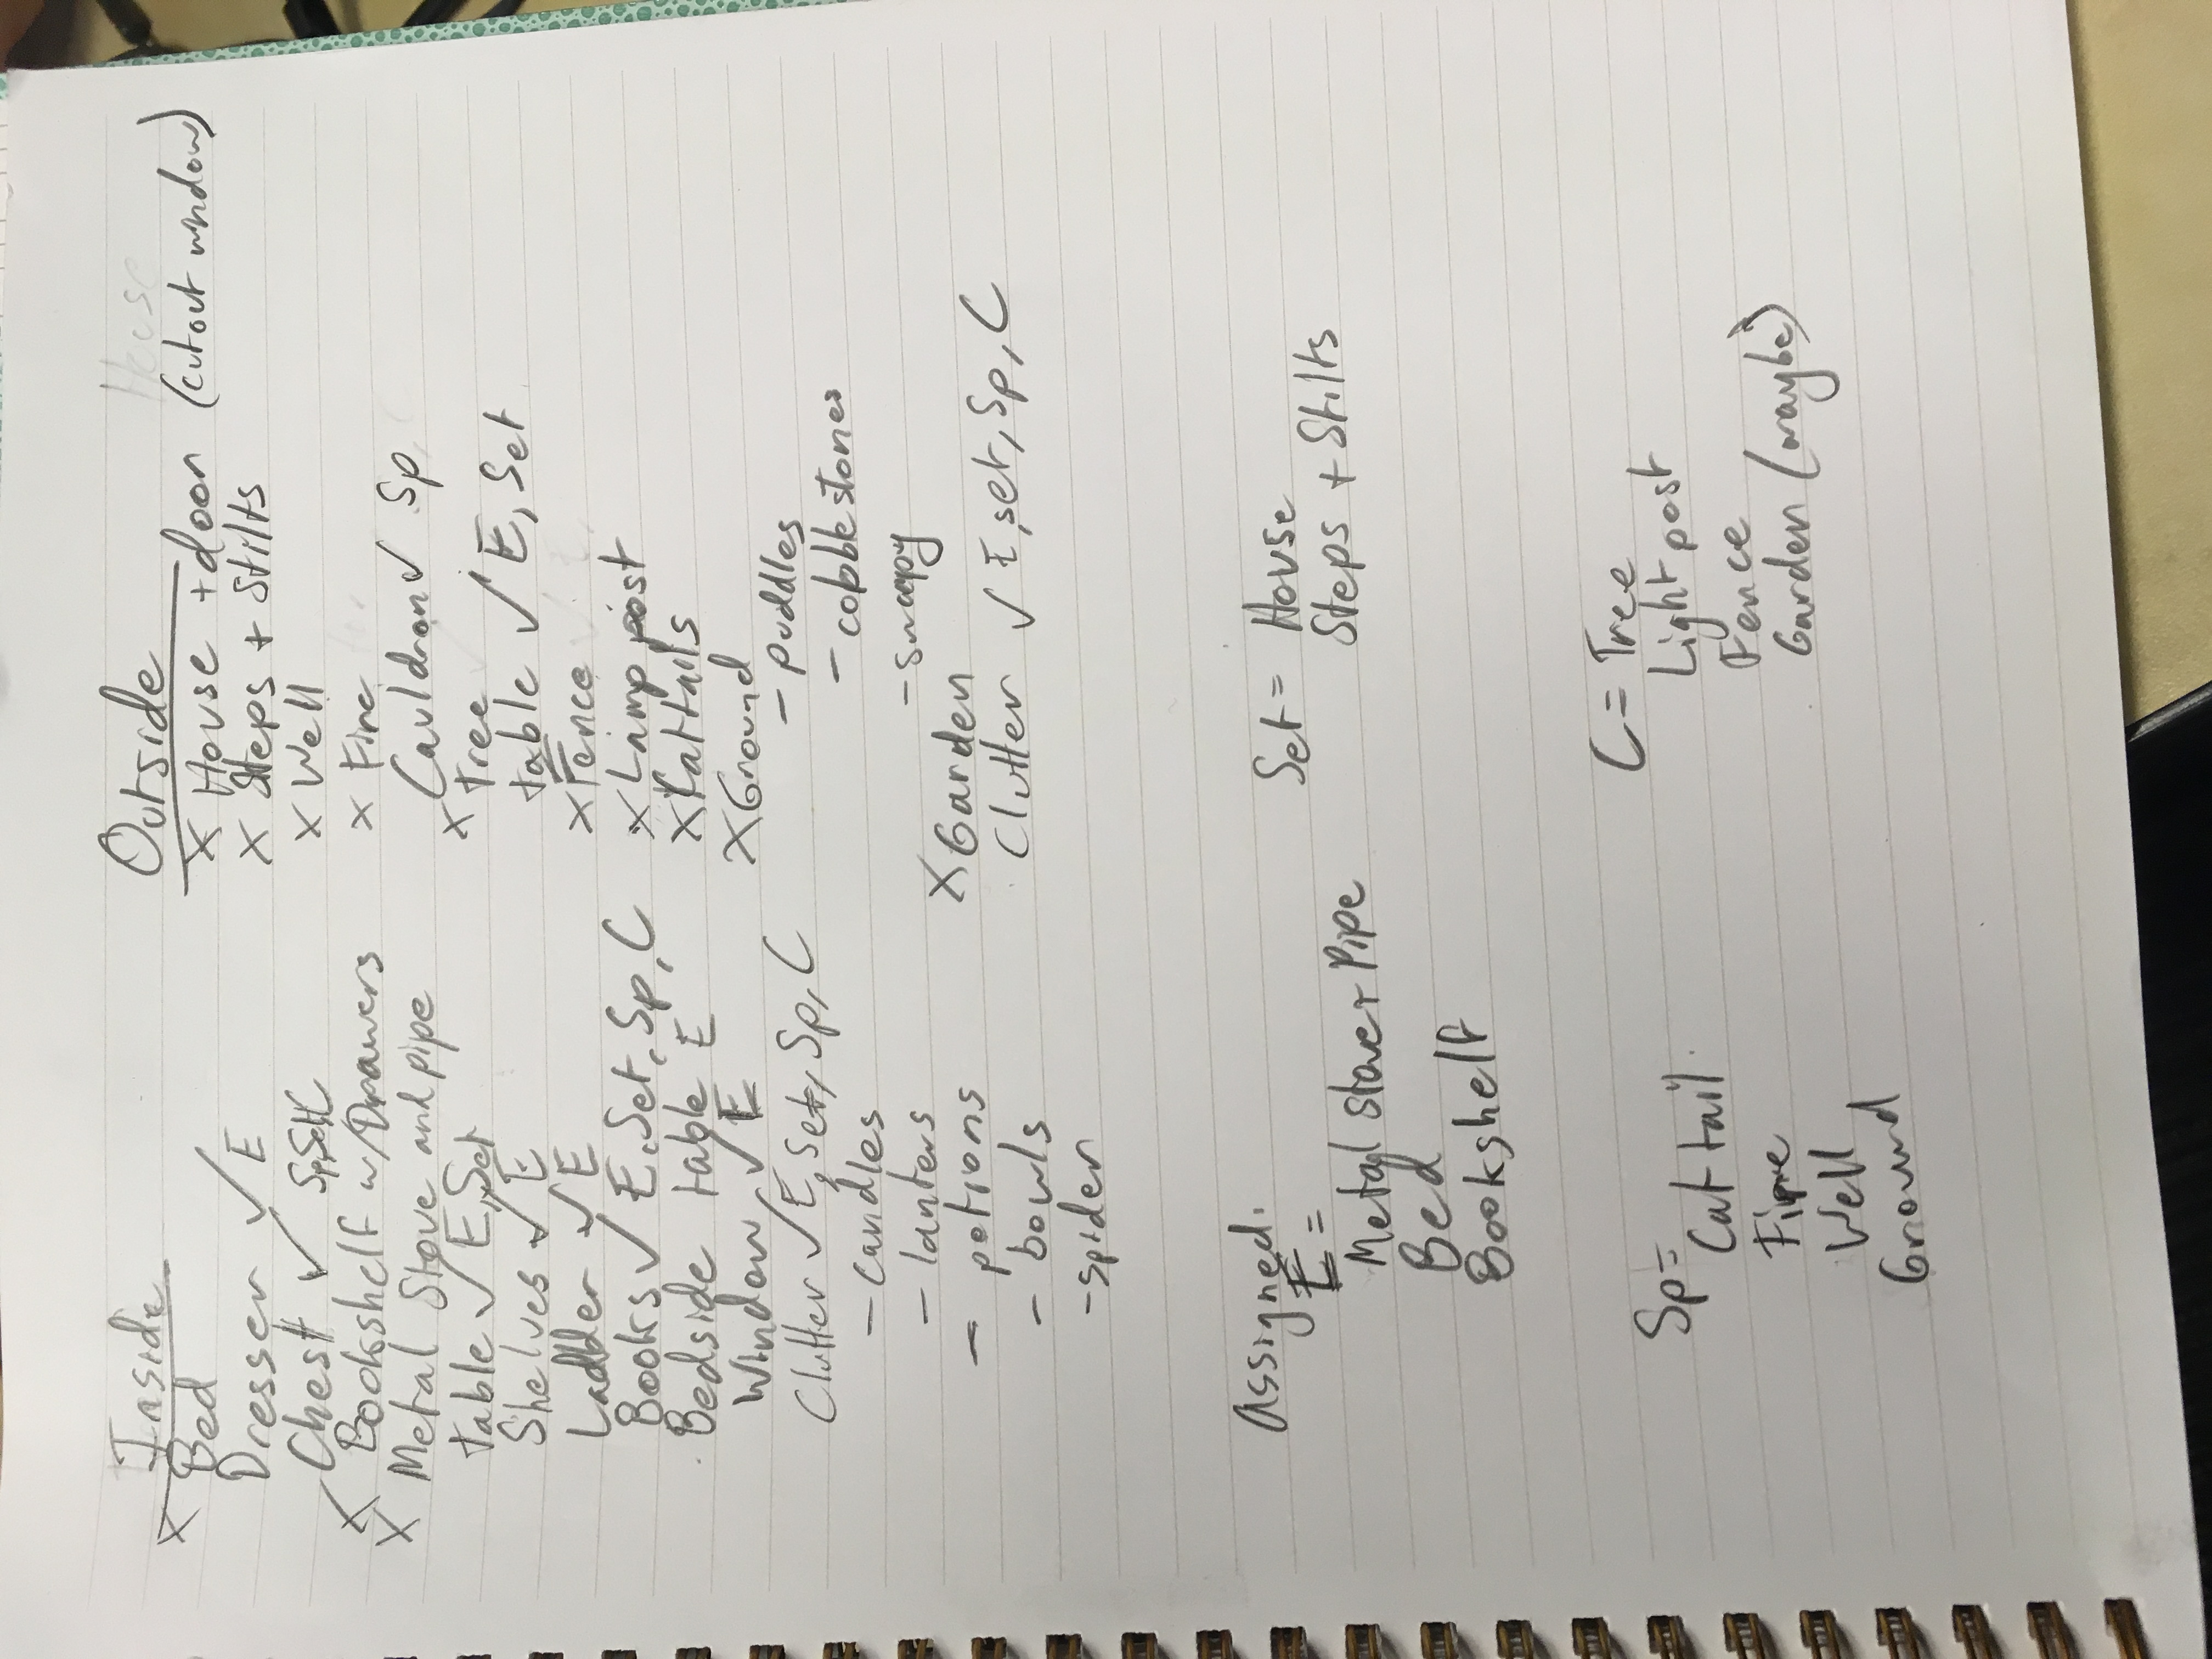 Inside
X Bed
Dresser ✓ E
Chest ✓ Sp, Set, C
X Bookshelf w/Drawers
X Metal Stove and pipe
table ✓ E, Set
Shelves ✓ E
Ladder ✓ E
Books ✓ E, Set, Sp, C
Bedside table E
Window ✓ E
Clutter ✓ E, Set, Sp, C
- candles
- lanters
- potions
- bowls
- spider
Outside
House
X House + door (cutout window)
X Steps + Stilts
X Well
X Fire
Cauldron ✓ Sp
X tree
table ✓ E, Set
X Fence
X Lamp post
X Cattails
X Ground
- puddles
- cobble stones
- swampy
X Garden
Clutter ✓ E, set, Sp, C
Assigned.
E =
Metal stove + Pipe
Bed
Bookshelf
Set = House
Steps + Stilts
Sp =
Cat tail
Fire
Well
Ground
C = Tree
Light post
Fence
Garden (maybe)